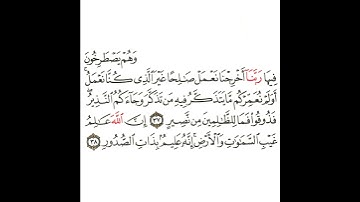 وَهُمْ يَصْطَرِخُونَ
فِيهَا رَبَّنَآ أَخْرِجْنَا نَعْمَلْ صَٰلِحًا غَيْرَ ٱلَّذِى كُنَّا نَعْمَلُ ۚ
أَوَلَمْ نُعَمِّرْكُم مَّا يَتَذَكَّرُ فِيهِ مَن تَذَكَّرَ وَجَآءَكُمُ ٱلنَّذِيرُ ۖ
فَذُوقُوا۟ فَمَا لِلظَّٰلِمِينَ مِن نَّصِيرٍ ٣٧ إِنَّ ٱللَّهَ عَٰلِمُ
غَيْبِ ٱلسَّمَٰوَٰتِ وَٱلْأَرْضِ ۚ إِنَّهُۥ عَلِيمٌۢ بِذَاتِ ٱلصُّدُورِ ٣٨